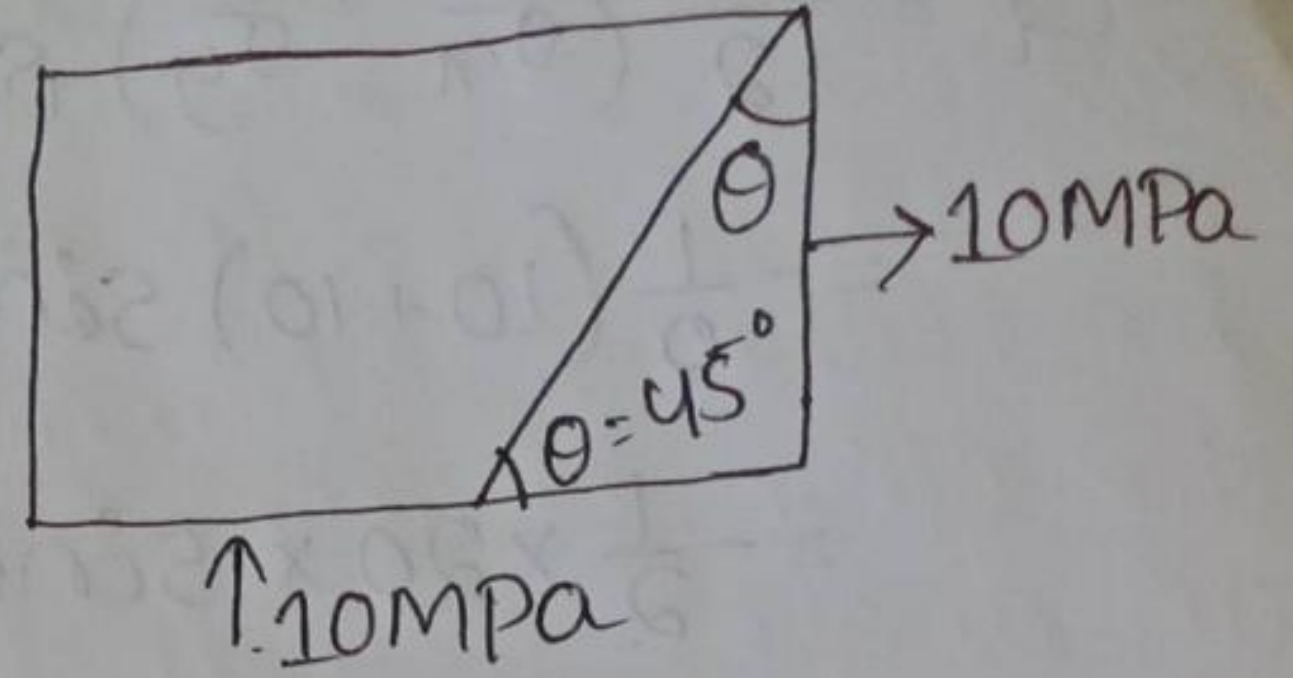 θ
10MPa
θ=45°
10MPa